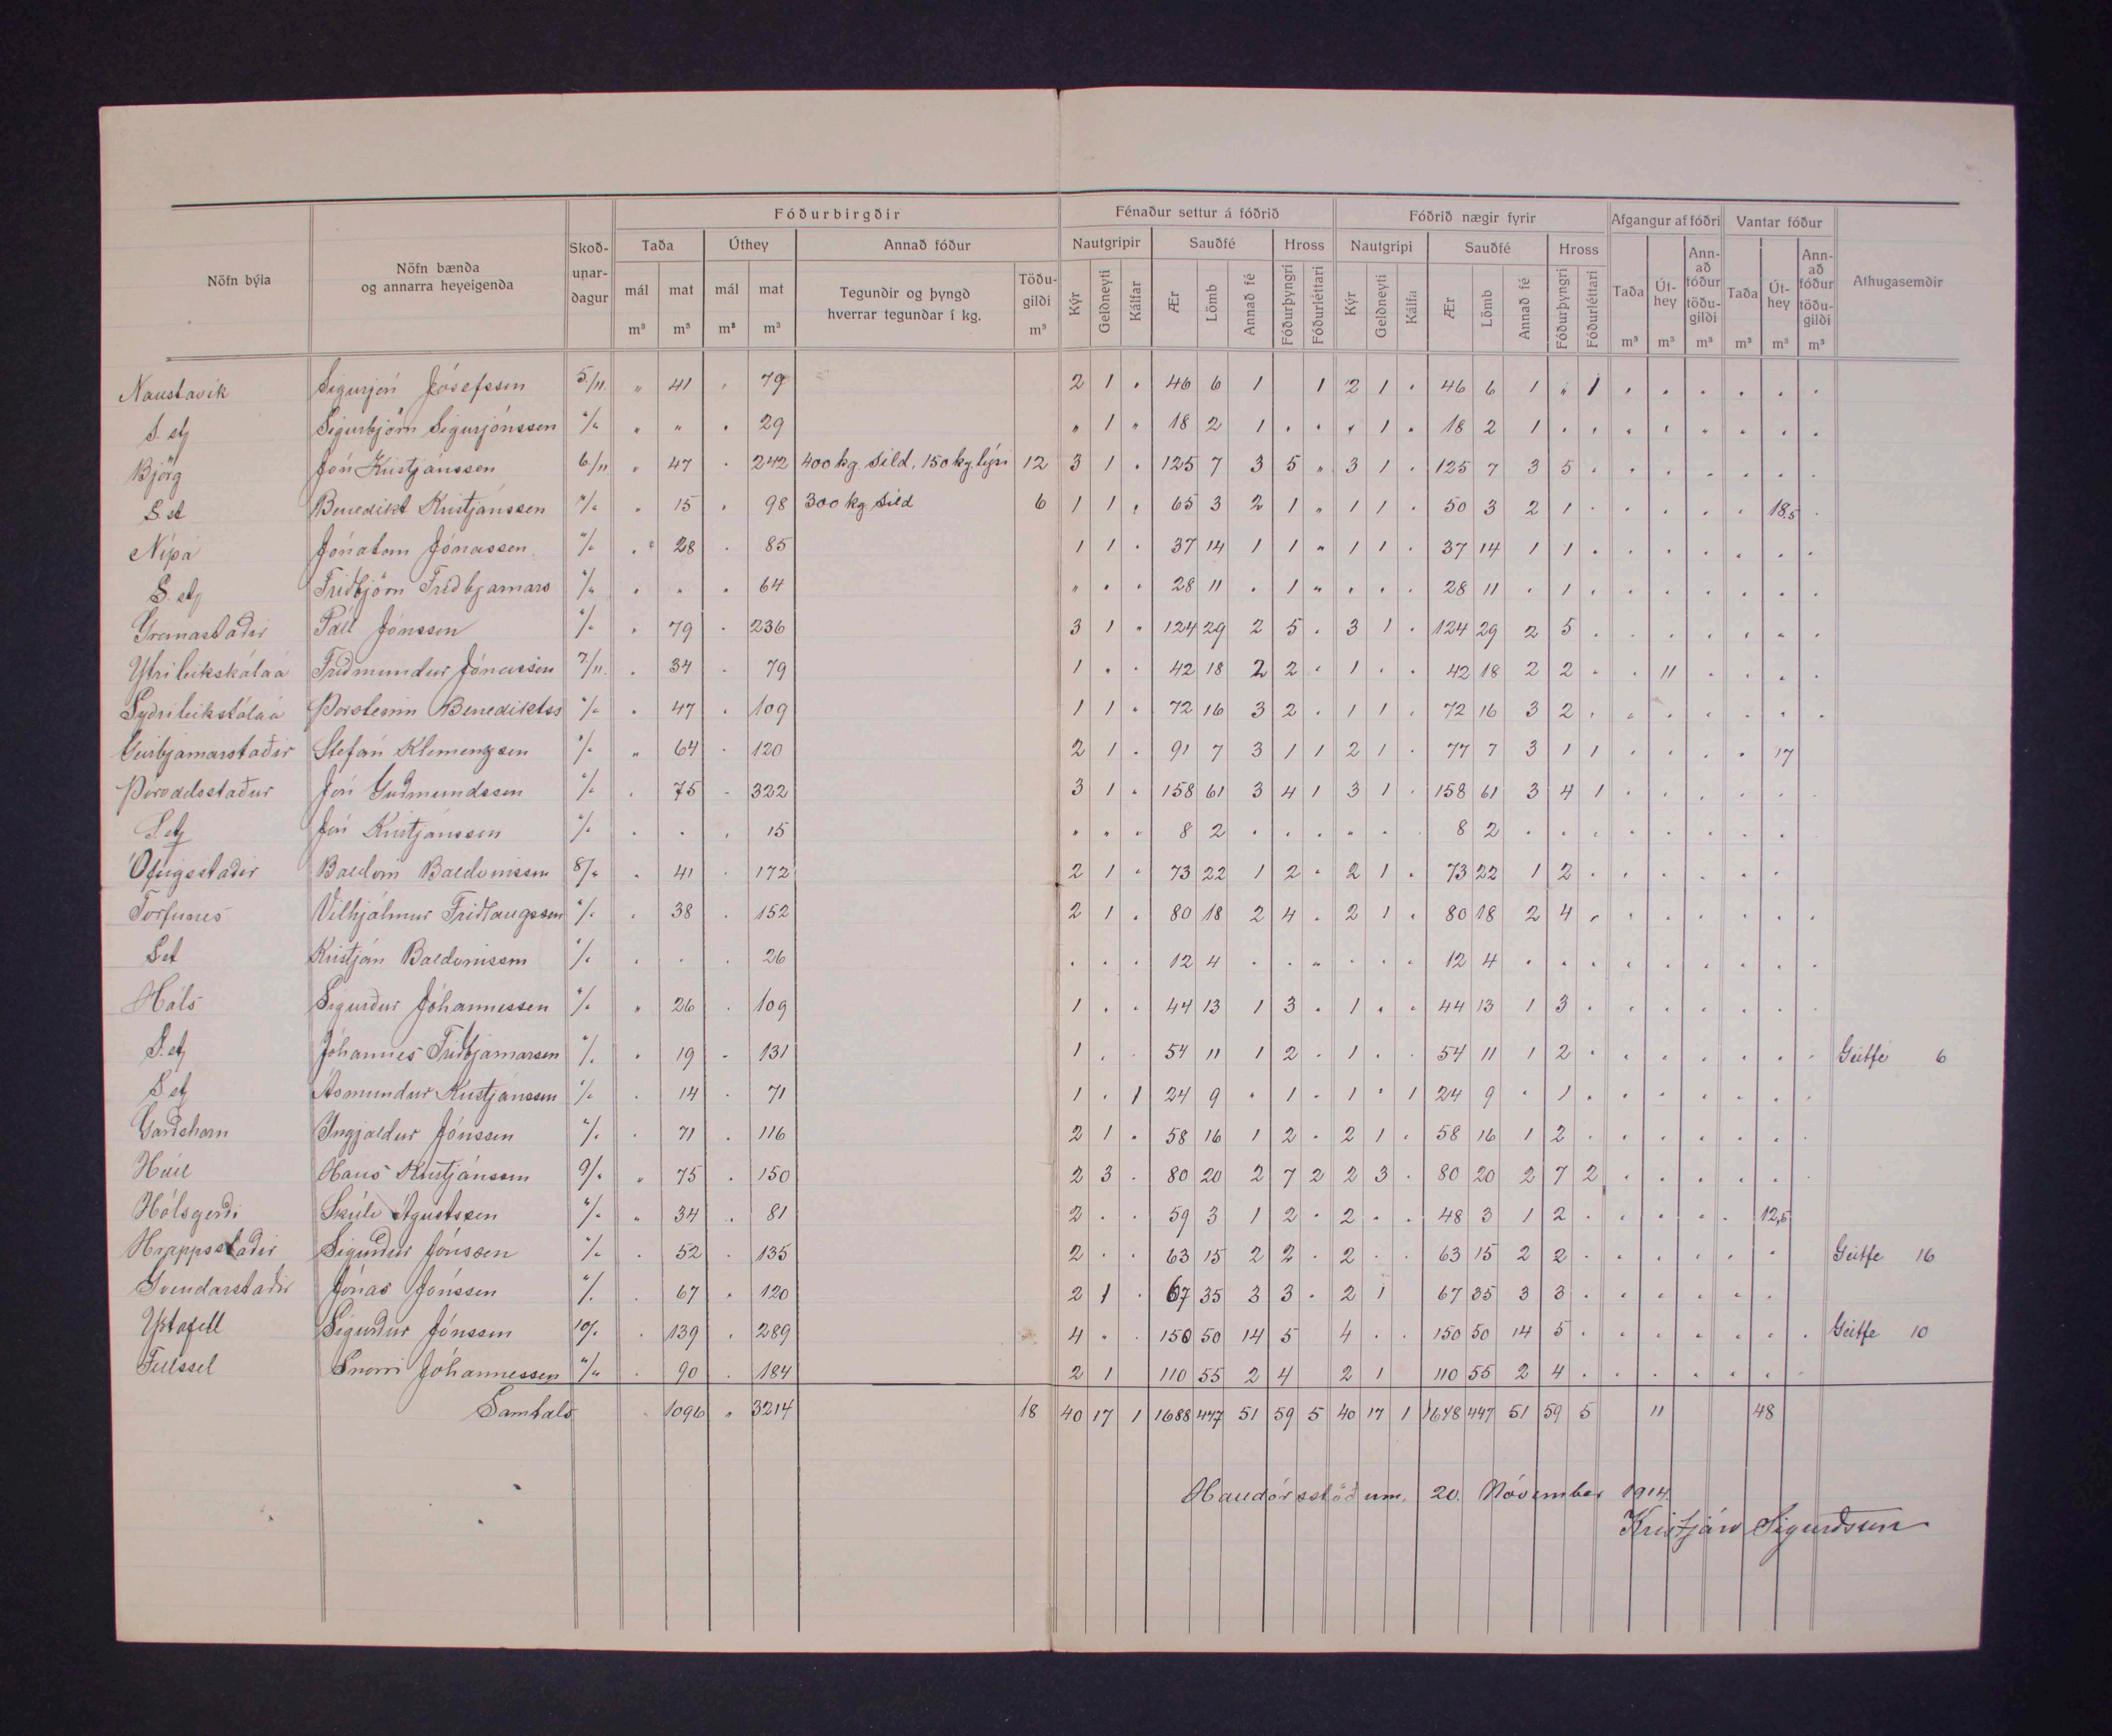 Fóðurbirgðir Fénaður settur á fóðrið Fóðrið nægir fyrir Afgangur af fóðri Vantar fóður
Nöfn býla Nöfn bænda og annarra heyeigenda Skoð-unar-dagur Taða Úthey Annað fóður Nautgripir Sauðfé Hross Nautgripi Sauðfé Hross Taða Út-hey Ann-að fóður töðu-gildi Taða Út-hey Ann-að fóður töðu-gildi Athugasemdir
mál mat mál mat Tegundir og þyngd hverrar tegundar í kg. Töðu-gildi Kýr Geldneyti Kálfar Ær Lömb Annað fé Fóðurþyngri Fóðurléttari Kýr Geldneyti Kálfa Ær Lömb Annað fé Fóðurþyngri Fóðurléttari
m³ m³ m³ m³ m³ m³ m³ m³ m³ m³ m³
Naustavík Sigurjón Jósefsson 5/11 " 41 . 79 2 1 . 46 6 1 1 2 1 . 46 6 1 " 1 . . . . . .
S. st Sigurbjörn Sigurjónsson "/" " " . 29 " 1 " 18 2 1 . . " 1 . 18 2 1 . . . . . . . .
Björg Jón Kristjánsson 6/11 " 47 . 242 400 kg. síld, 150 kg. lýsi 12 3 1 . 125 7 3 5 " 3 1 . 125 7 3 5 . . . . . . .
S. st Benedikt Kristjánsson "/" . 15 . 98 300 kg síld 6 1 1 . 65 3 2 1 " 1 1 . 50 3 2 1 . . . . . 18.5 .
Nípá Jónatan Jónasson "/" . 28 . 85 1 1 . 37 14 1 1 " 1 1 . 37 14 1 1 . . . . . . .
S. st Friðbjörn Friðbjarnars "/" . . . 64 " . . 28 11 . 1 " . . . 28 11 . 1 . . . . . . .
Granastaðir Páll Jónsson "/" . 79 . 236 3 1 " 124 29 2 5 . 3 1 . 124 29 2 5 . . . . . . .
Ytrileikskálaá Friðmundur Jónasson 7/11. . 34 . 79 1 . . 42 18 2 2 . 1 . . 42 18 2 2 . . 11 . . . .
Syðrileikskálaá Þorsteinn Benediktss "/" . 47 . 109 1 1 . 72 16 3 2 . 1 1 . 72 16 3 2 . . . . . . .
Geirbjarnarstaðir Stefán Klemenzson "/" " 64 . 120 2 1 . 91 7 3 1 1 2 1 . 77 7 3 1 1 . . . . 17
Þóroddsstaður Jón Guðmundsson "/" . 75 - 322 3 1 . 158 61 3 4 1 3 1 . 158 61 3 4 1 . . . . . .
S. st Jón Kristjánsson "/" . . . 15 " " " 8 2 . . . . . . 8 2 . . . . . . . .
Ófeigsstaðir Baldvin Baldvinsson 8/" . 41 . 172 2 1 . 73 22 1 2 . 2 1 . 73 22 1 2 . . . . . .
Torfunes Vilhjálmur Friðlaugsson "/" . 38 . 152 2 1 . 80 18 2 4 . 2 1 . 80 18 2 4 . . . . . . .
S. st Kristján Baldvinsson "/" . . . 26 . . . 12 4 . . " . . . 12 4 . . . . . . . . .
Háls Sigurður Jóhannesson "/" " 26 . 109 1 . . 44 13 1 3 . 1 . . 44 13 1 3 . . . . . . .
S. st Jóhannes Friðbjarnarson "/" . 19 - 131 1 . . 54 11 1 2 . 1 . . 54 11 1 2 . . . . . . . Geitfé 6
S. st Ásmundur Kristjánsson "/" . 14 . 71 1 . 1 24 9 . 1 . 1 . 1 24 9 . 1 . . . . . . .
Garðshorn Ingjaldur Jónsson "/" . 71 . 116 2 1 . 58 16 1 2 . 2 1 . 58 16 1 2 . . . . . . .
Húll Hans Kristjánsson 9/" " 75 . 150 2 3 . 80 20 2 7 2 2 3 . 80 20 2 7 2 . . . . . .
Hólsgerði Skúli Ágústsson "/" " 34 . 81 2 . . 59 3 1 2 . 2 . . 48 3 1 2 . . . . . 12,5
Hrappsstaðir Sigurður Jónsson "/" . 52 . 135 2 . . 63 15 2 2 . 2 . . 63 15 2 2 . . . . . . Geitfé 16
Gvendarstaðir Jónas Jónsson "/" . 67 . 120 2 1 . 67 35 3 3 . 2 1 67 35 3 3 . . . . . .
Ystafell Sigurður Jónsson 10/" . 139 . 289 4 . . 150 50 14 5 4 . . 150 50 14 5 . . . . . . . Geitfé 10
Fellssel Snorri Jóhannesson "/" . 90 . 184 2 1 110 55 2 4 2 1 110 55 2 4 . . . . . . .
Samtals . 1096 " 3214 18 40 17 1 1688 447 51 59 5 40 17 1 1648 447 51 59 5 11 48
20. Nóvember 1914.
Kristján Sigurðsson